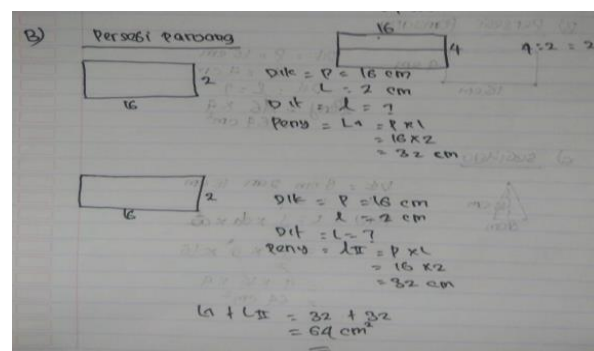 B) Persegi Panjang
16
4
4 : 2 = 2
2
16
Dik = P = 16 cm
l = 2 cm
Dit = l = ?
Peny = L1 = P x l
= 16 x 2
= 32 cm
2
16
Dik = P = 16 cm
l = 2 cm
Dit = L = ?
Peny = L II = P x l
= 16 x 2
= 32 cm
L1 + L II = 32 + 32
= 64 cm²